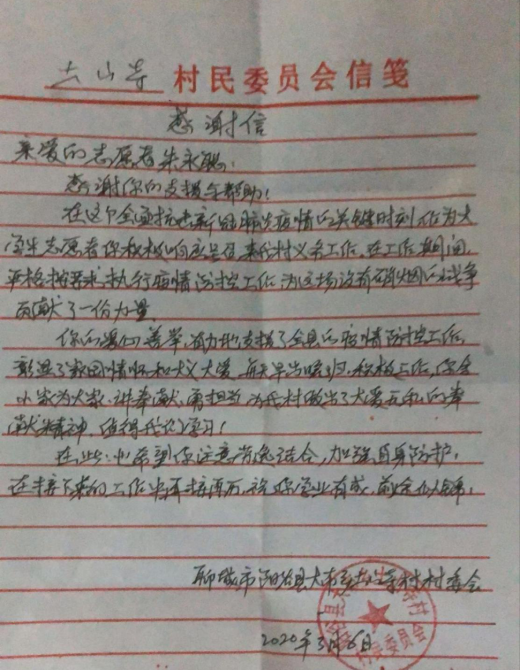 土山寺 村民委员会信笺
感谢信
亲爱的志愿者朱永聪:
感谢你的支援与帮助!
在这个全面抗击新冠肺炎疫情的关键时刻,作为大
学生志愿者你积极响应号召来我村义务工作,在工作期间,
严格按要求执行疫情防控工作,为这场没有硝烟的战争
贡献了一份力量。
你的善举,有力地支援了全县的疫情防控工作,
彰显了家国情怀和大义大爱,每天早出晚归,积极工作,你舍
小家为大家,讲奉献,勇担当,为我村做出了大爱无私的奉
献精神,值得我们学习!
在此,也希望你注意劳逸结合,加强自身防护,
在接下来的工作中再接再厉,祝你学业有成,前途似锦。
聊城市阳谷县大布乡土山寺村村委会
2020年3月6日